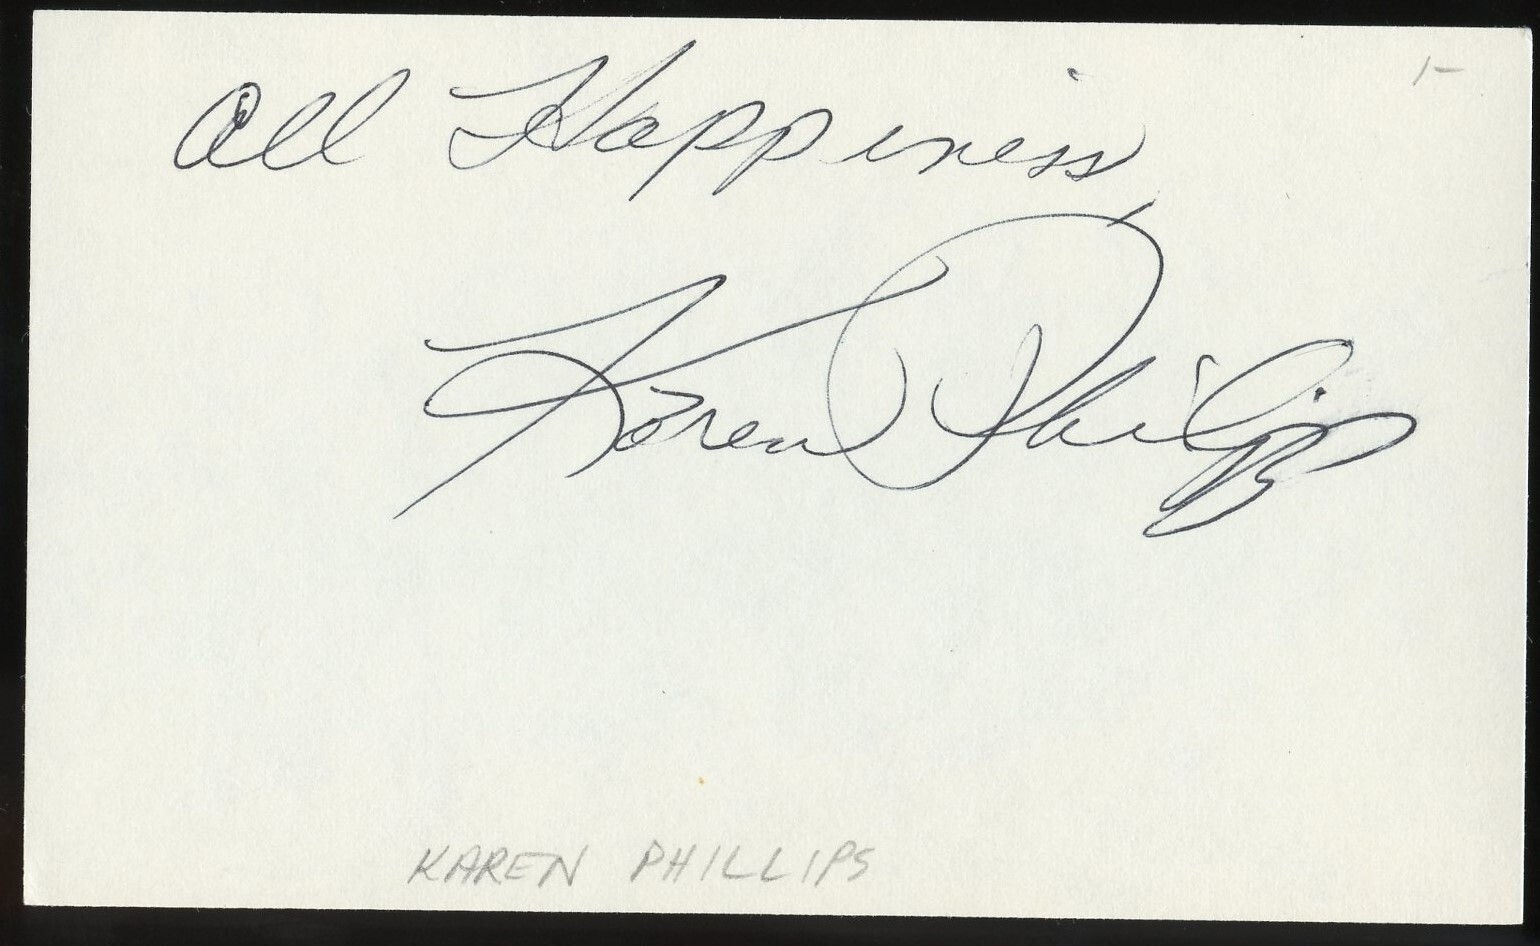 All Happiness,
Karen Phillips
KAREN PHILLIPS
1-